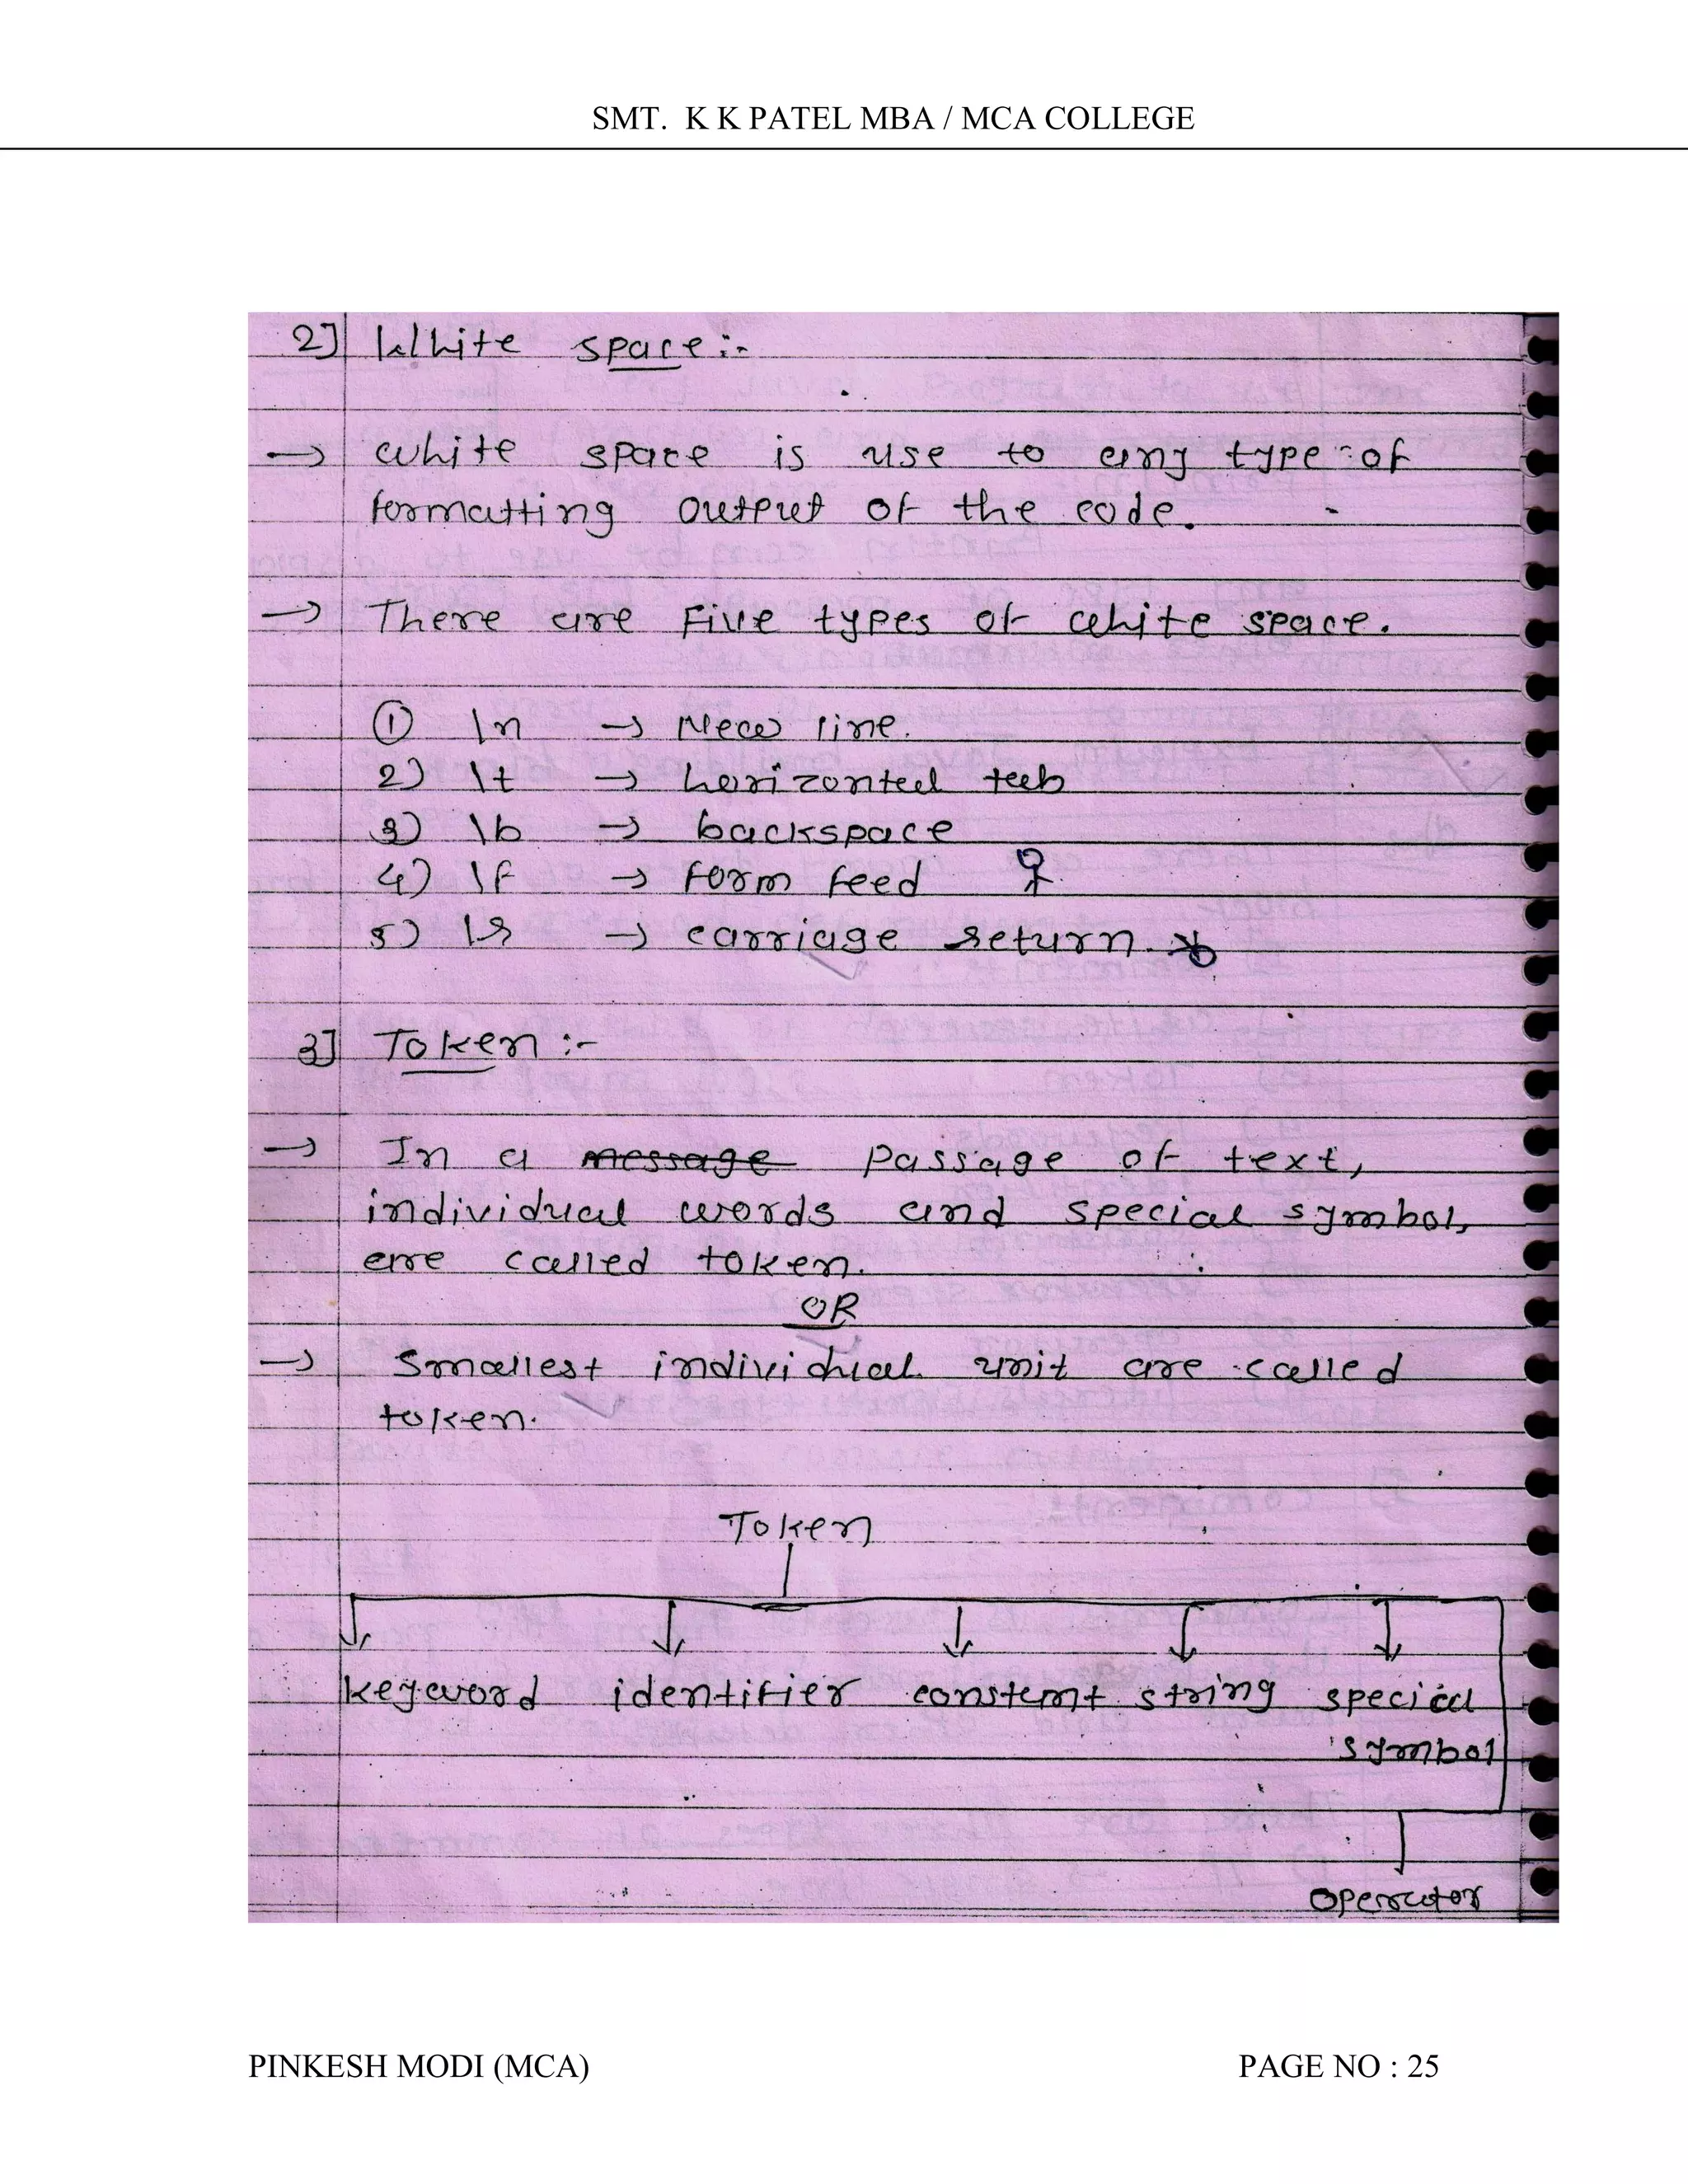 SMT. K K PATEL MBA / MCA COLLEGE
2] White space :-
→ white space is use to any type of
formatting output of the code.
→ There are Five types of white space.
① \n → New line.
2) \t → horizontal tab
3) \b → backspace
4) \f → form feed ♀
5) \r → carriage return.
3] Token :-
→ In a message passage of text,
individual words and special symbol,
are called token.
OR
→ Smallest individual unit are called
token.
Token
keyword identifier constant string special
symbol
operator
PINKESH MODI (MCA) PAGE NO : 25